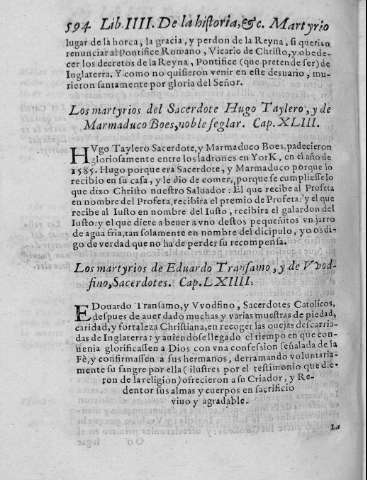 594 Lib. IIII. De la historia, &c. Martyrio
lugar de la horca, la gracia, y perdon de la Reyna, si querian
renunciar al Pontifice Romano, Vicario de Christo, y obede-
cer los decretos de la Reyna, Pontifice (que pretende ser) de
Inglaterra. Y como no quisieron venir en este desuario, mu-
rieron santamente por gloria del Señor.
Los martyrios del Sacerdote Hugo Taylero, y de
Marmaduco Boes, noble seglar. Cap. XLIII.
HVgo Taylero Sacerdote, y Marmaduco Boes, padecieron
gloriosamente entre los ladrones en York, en el año de
1585. Hugo porque era Sacerdote, y Marmaduco porque lo
recibio en su casa, y le dio de comer, porque se cumpliesse lo
que dixo Christo nuestro Saluador: El que recibe al Profeta
en nombre del Profeta, recibira el premio de Profeta: y el que
recibe al Iusto en nombre del Iusto, recibira el galardon del
Iusto: y el que diere a beuer a vno destos pequeñitos vn jarro
de agua fria, tan solamente en nombre del dicipulo, yo os di-
go de verdad que no ha de perder su recompensa.
Los martyrios de Eduardo Transamo, y de Vvod-
fino, Sacerdotes. Cap. LXIIII.
EDouardo Transamo, y Vvodfino, Sacerdotes Catolicos,
despues de auer dado muchas y varias muestras de piedad,
caridad, y fortaleza Christiana, en recoger las ouejas descarria-
das de Inglaterra: y auiendose llegado el tiempo en que con-
uenia glorificassen a Dios con vna confession señalada de la
Fè, y confirmassen a sus hermanos, derramando voluntaria-
mente su sangre por ella (ilustres por el testimonio que die-
ron de la religion) ofrecieron a su Criador, y Re-
dentor sus almas y cuerpos en sacrificio
viuo y agradable.
La